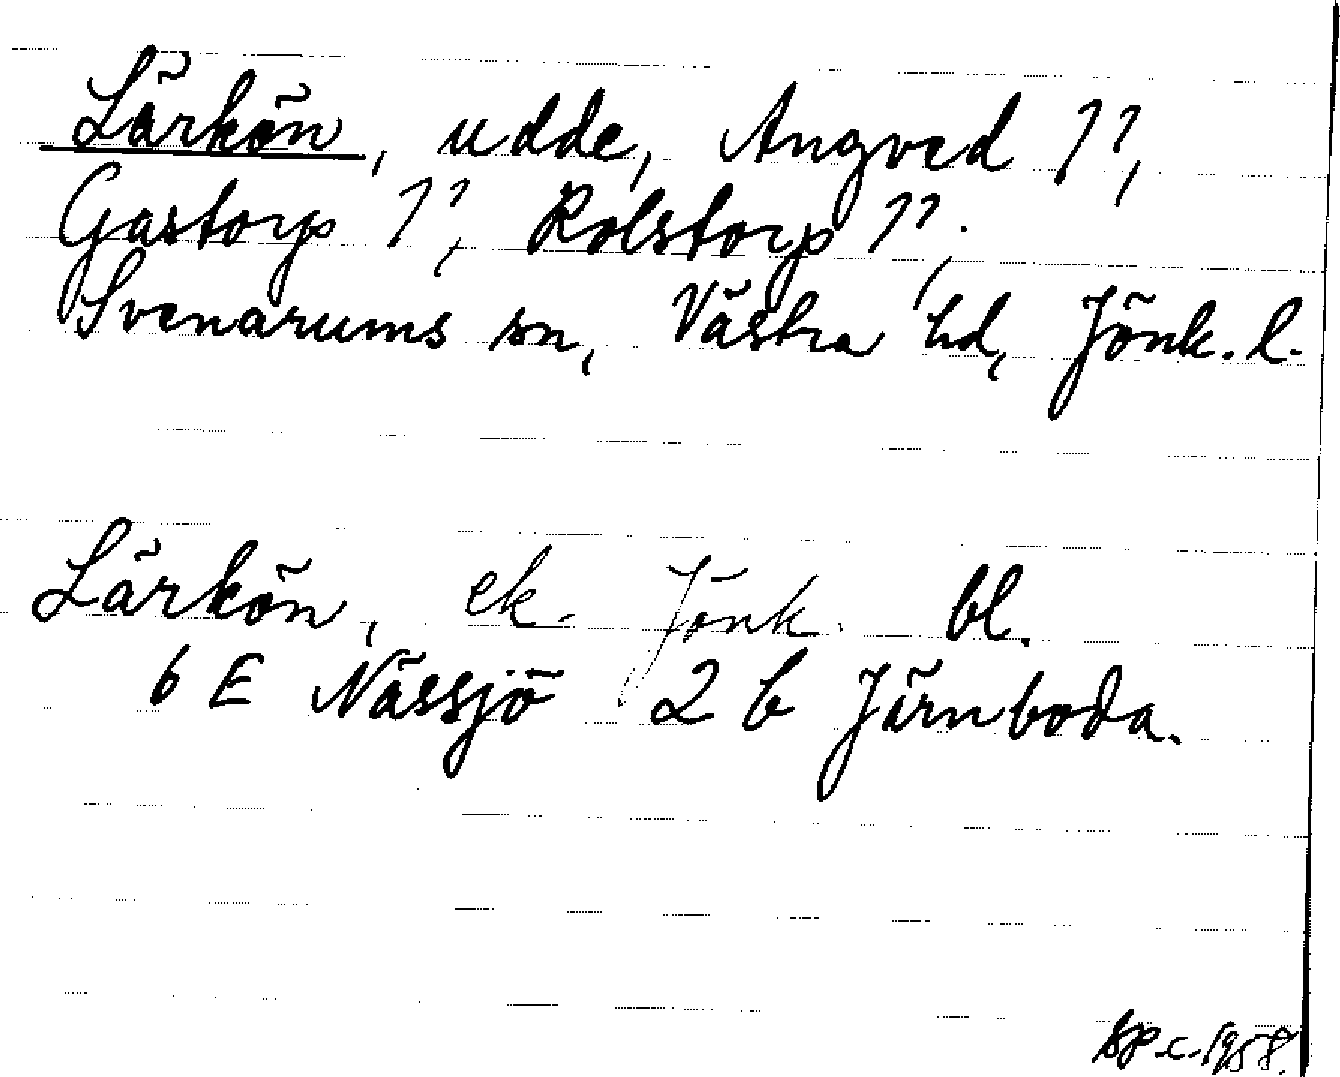 Lärkön, udde, Angved ??,
Gastorp ??, Rolstorp ??,
Svenarums sn, Västra hd, Jönk. l.
Lärkön, ek. Jönk. bl.
6 E Nässjö 2 b Järnboda.
c. 1958.